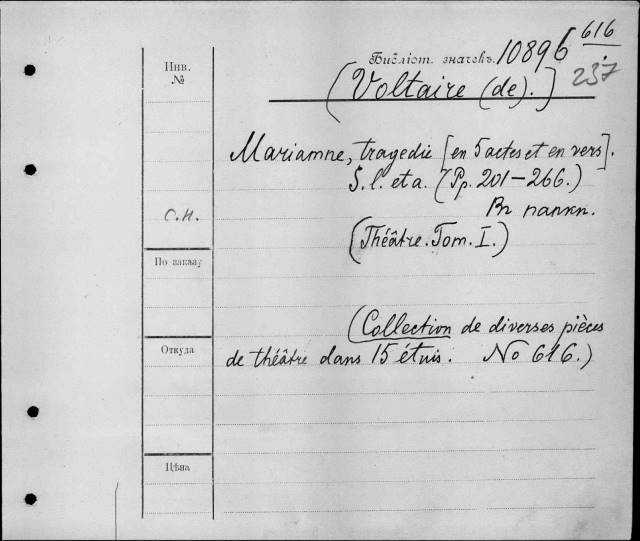 616
Инв. №
Библіот. значекъ. 10896
237
(Voltaire (de).]
Mariamne, tragedie [en 5 actes et en vers].
S. l. et a. (Pp. 201-266.)
Въ папкѣ.
С.Н.
(Théâtre. Tom. I.)
По заказу
(Collection de diverses pièces
Откуда
de théâtre dans 15 étuis. No 616.)
Цѣна